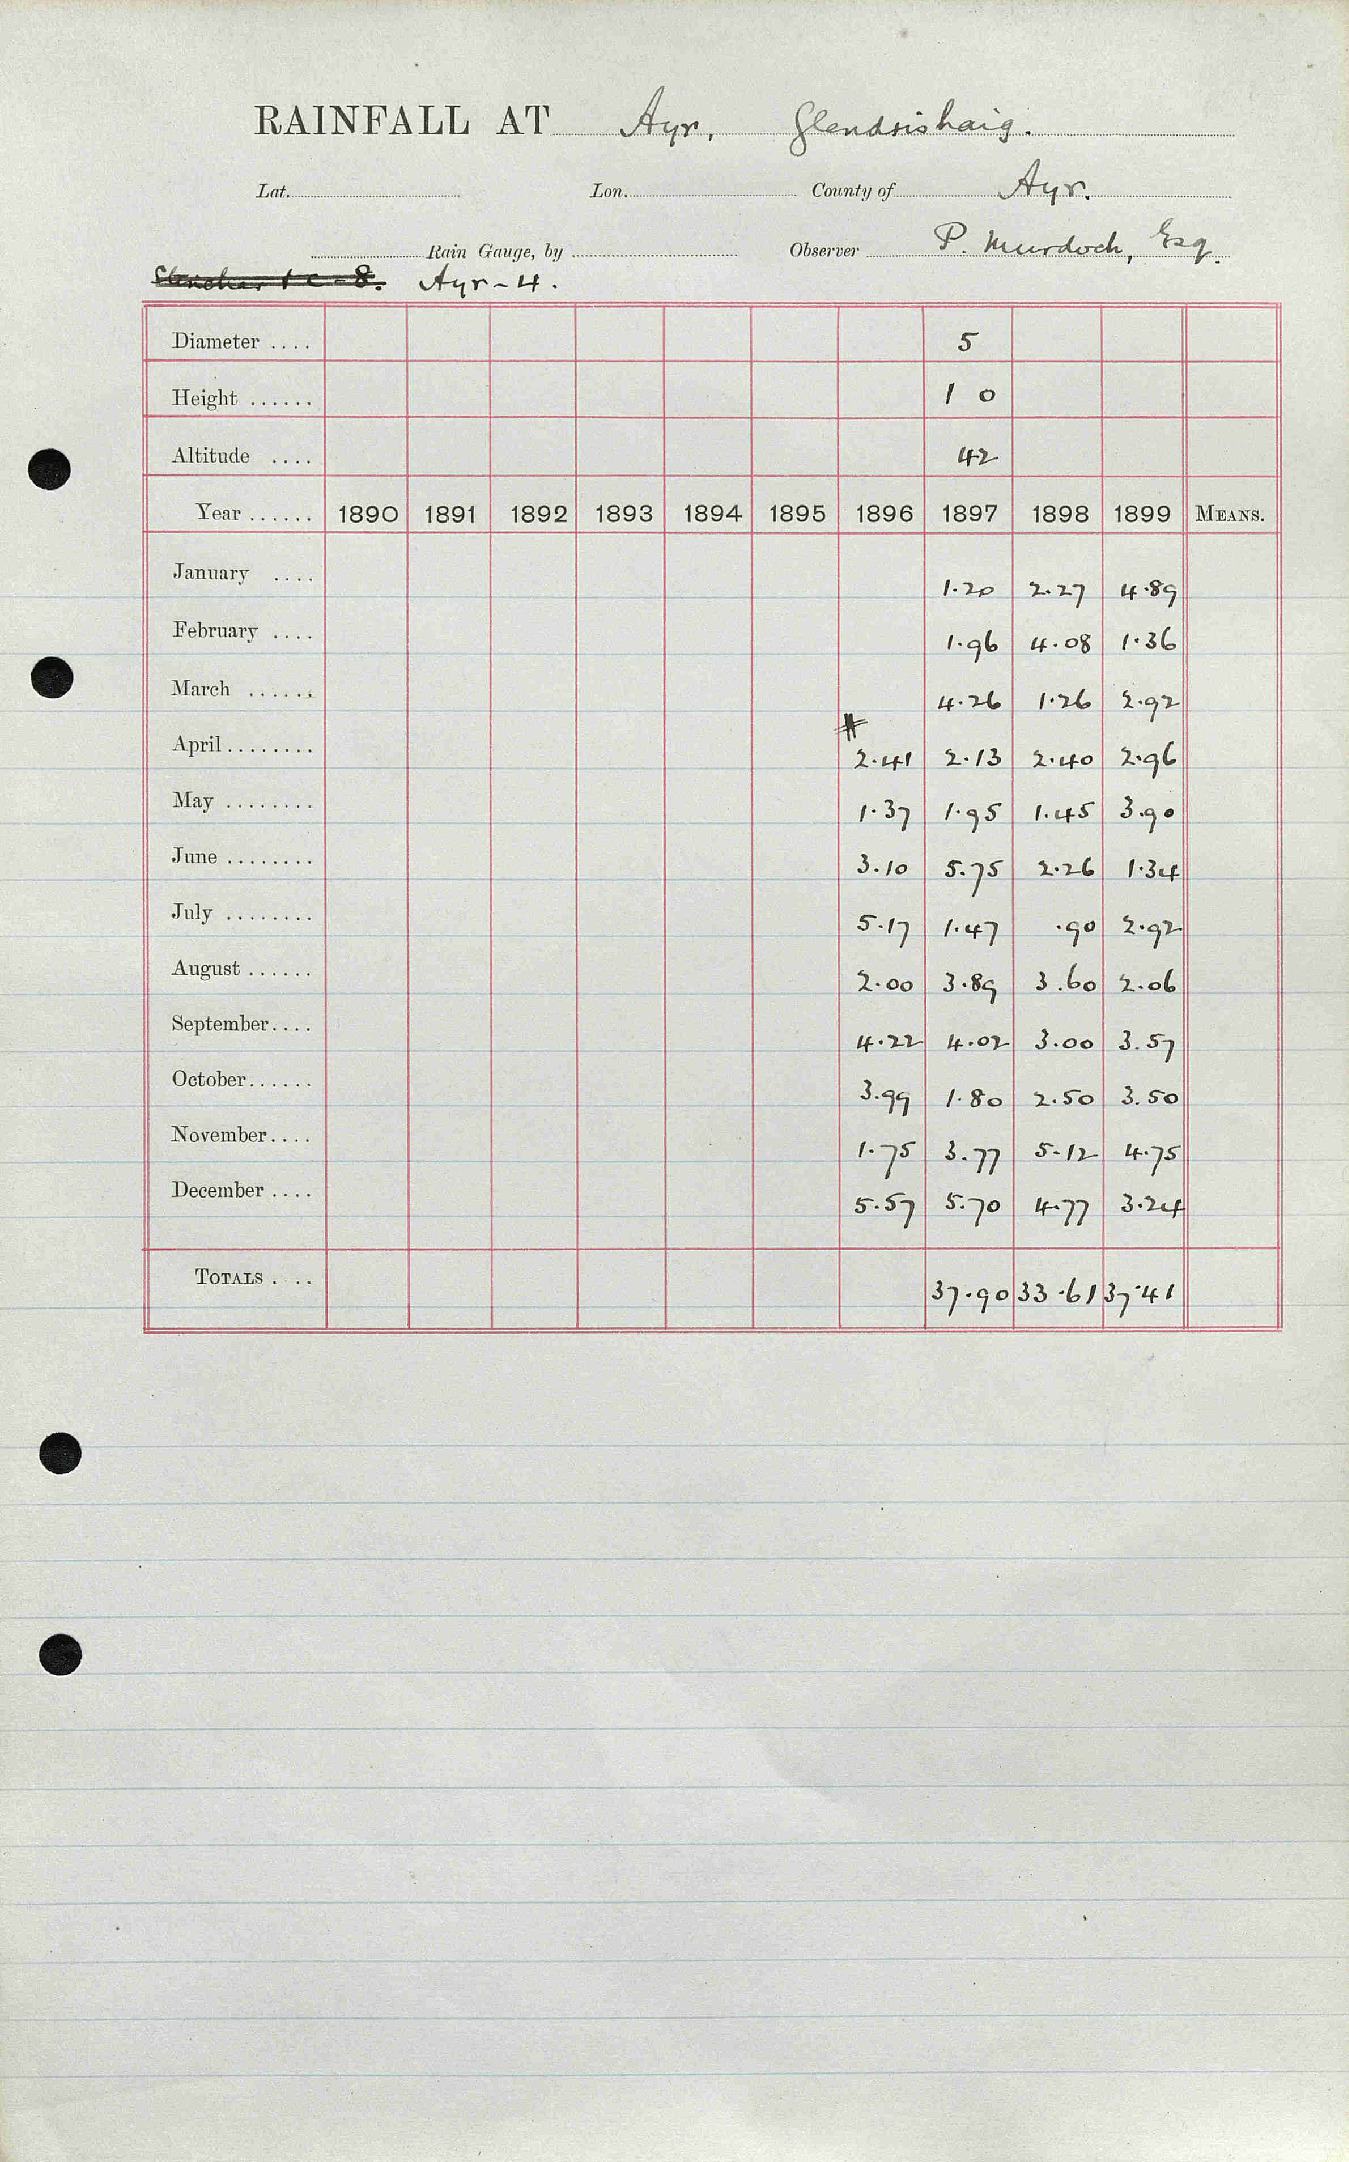 RAINFALL AT Ayr, Glendrishaig.
Lat. Lon. County of Ayr.
Rain Gauge, by Observer P. Murdoch, Esq.
Ayr-4.
Diameter .... 5
Height ...... 1 0
Altitude .... 42
Year ...... 1890 1891 1892 1893 1894 1895 1896 1897 1898 1899 MEANS.
January .... 1.20 2.27 4.89
February .... 1.96 4.08 1.36
March ...... 4.26 1.26 2.92
#
April ........ 2.41 2.13 2.40 2.96
May ........ 1.37 1.95 1.45 3.90
June ........ 3.10 5.75 2.26 1.34
July ........ 5.17 1.47 .90 2.92
August ...... 2.00 3.89 3.60 2.06
September.... 4.22 4.02 3.00 3.57
October...... 3.99 1.80 2.50 3.50
November.... 1.75 3.77 5.12 4.75
December .... 5.57 5.70 4.77 3.24
TOTALS . .. 37.90 33.61 37.41